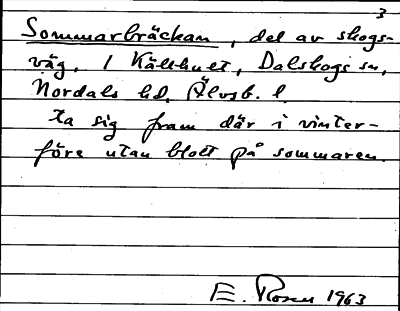 3
Sommarbräckan, del av skogs-
väg, i Källhult, Dalskogs sn,
Nordals hd. Älvsb. l.
ta sig fram där i vinter-
före utan blott på sommaren.
E. Rosen 1963